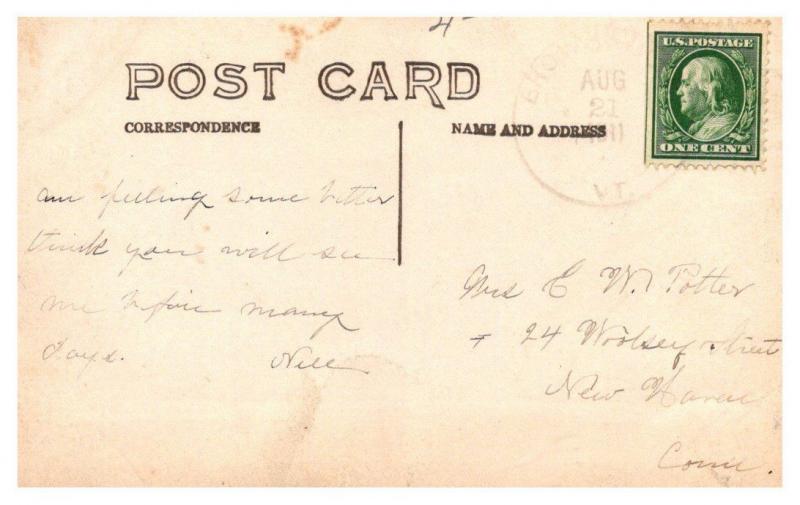 4
POST CARD
CORRESPONDENCE
NAME AND ADDRESS
AUG
21
1911
VT.
U.S. POSTAGE
ONE CENT
am feeling some better
think you will see
me before many
days. Nell
Mrs E W. Potter
24 Woolsey Street
New Haven
Conn.